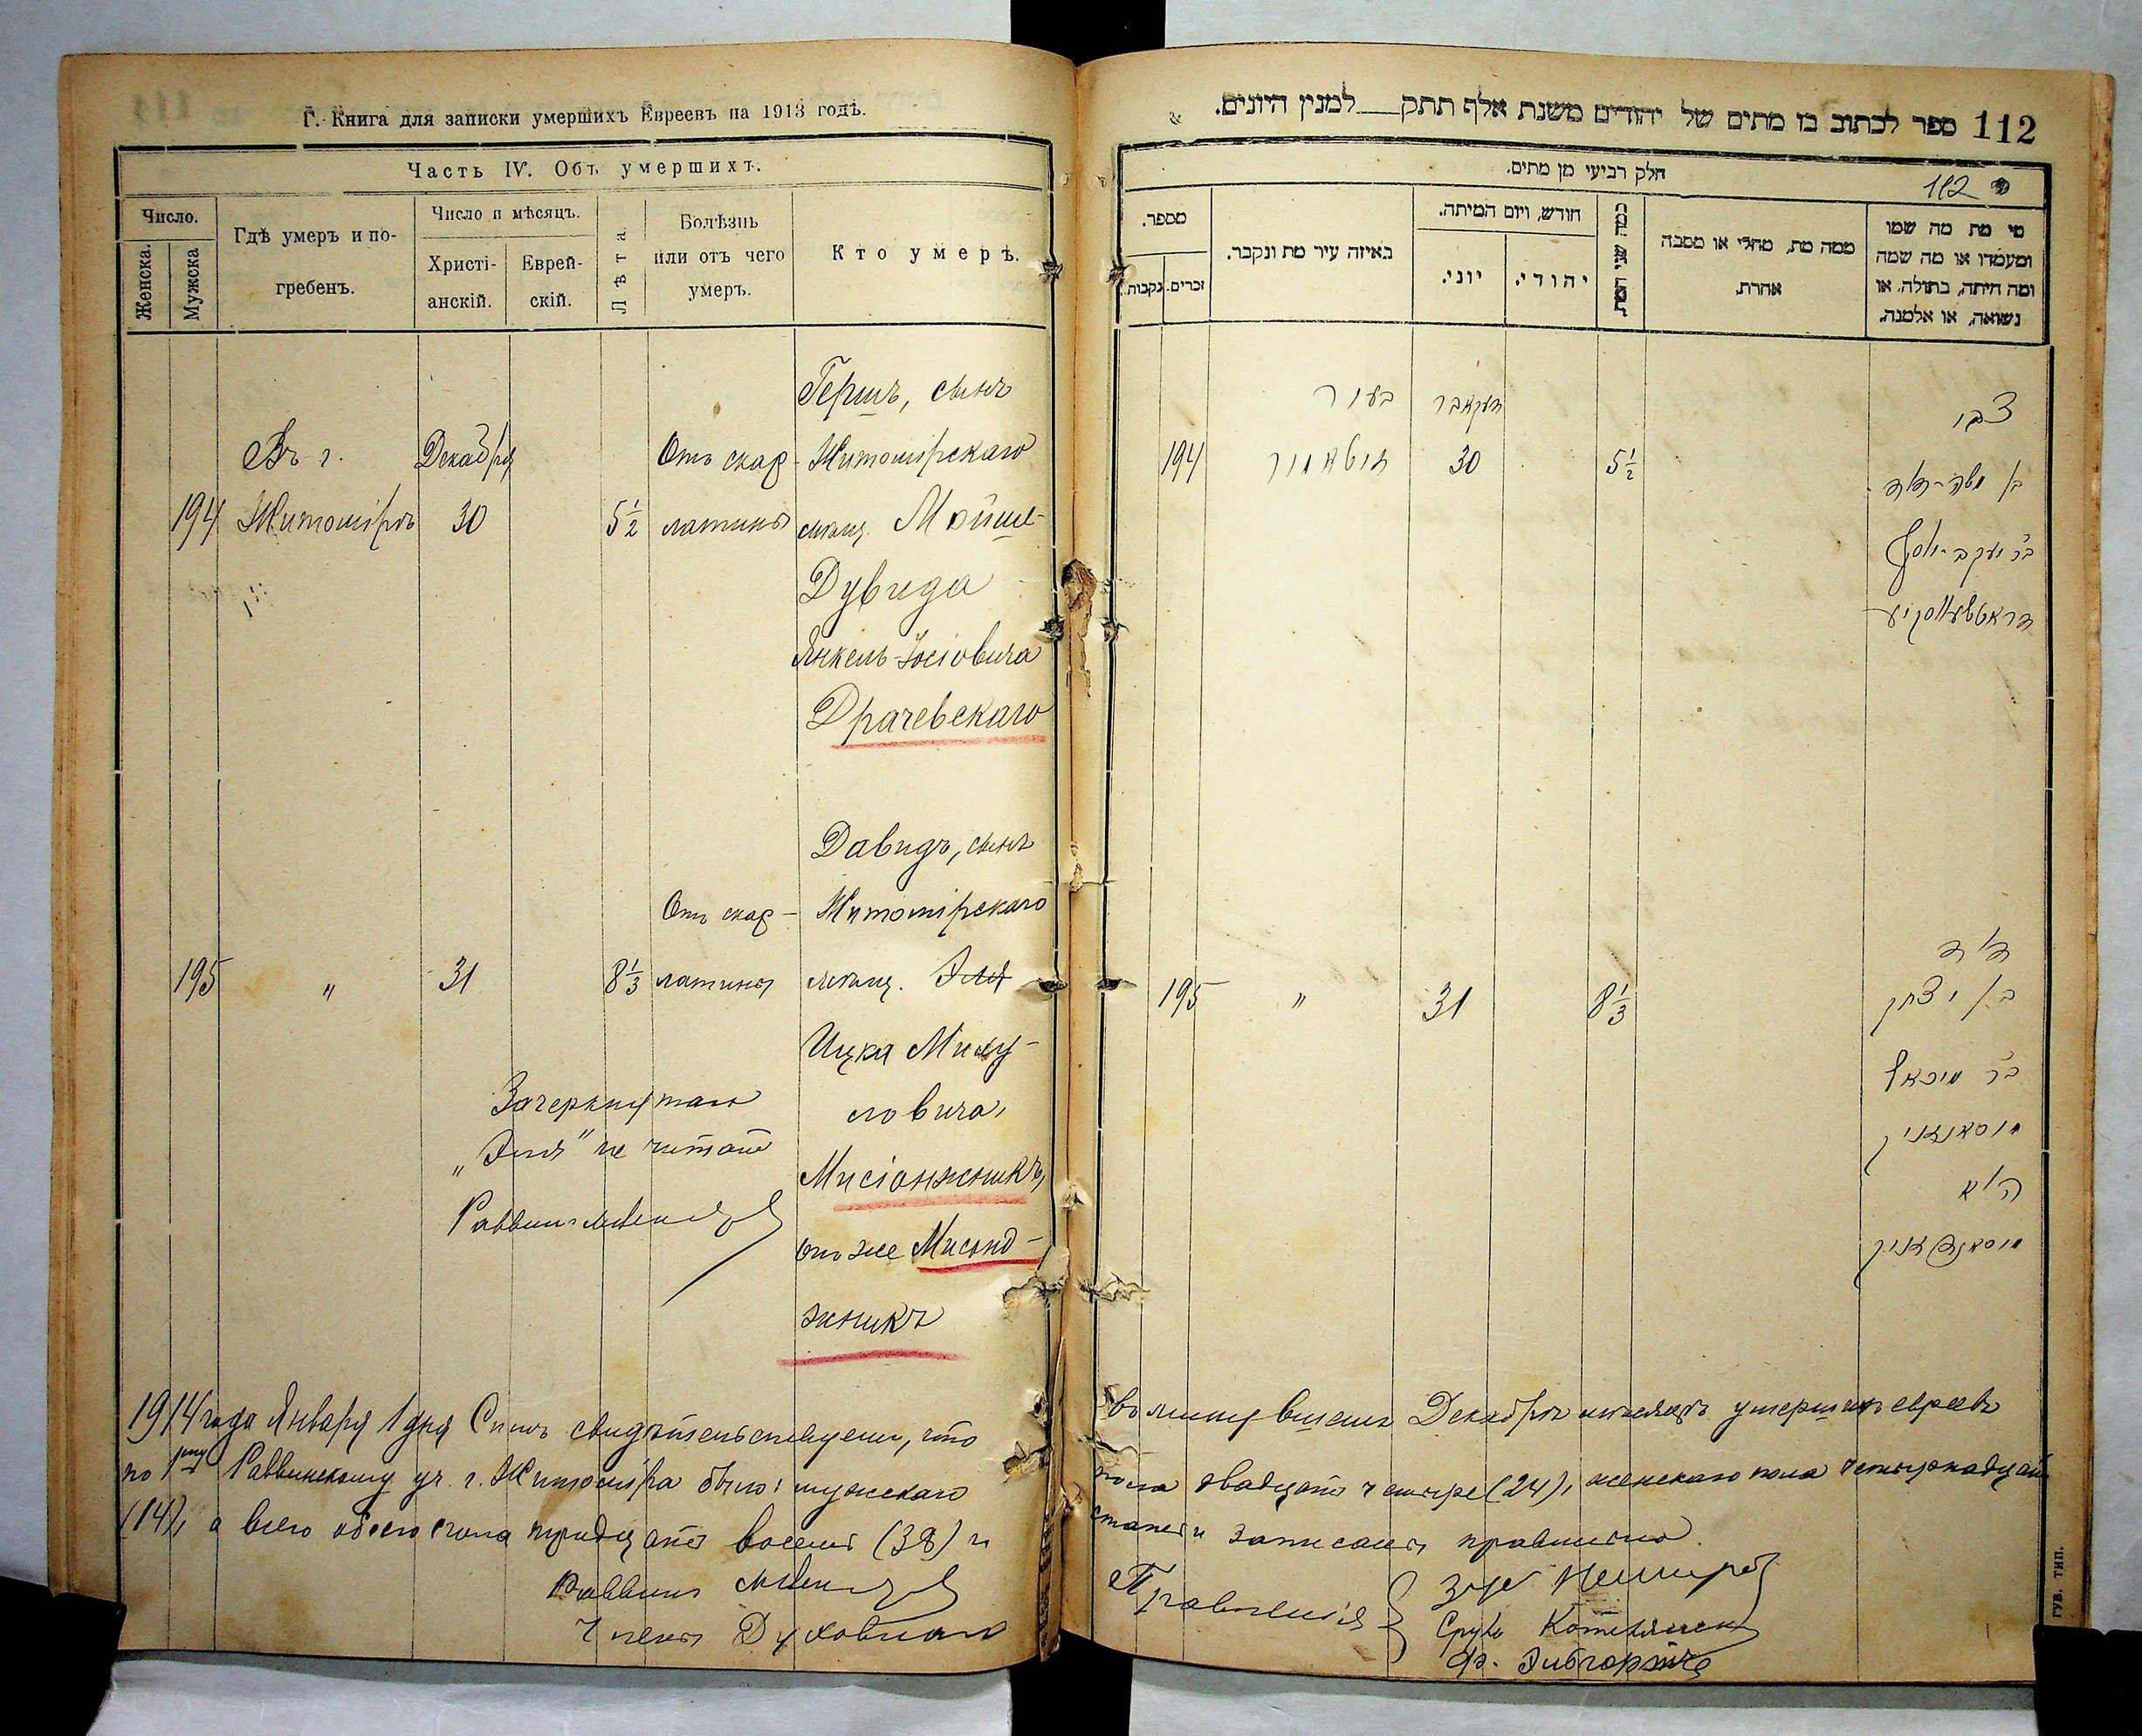 Г. Книга для записки умершихъ Евреевъ на 1913 годъ.
Часть IV. Объ умершихъ.
Число.
Женска.
Мужска
Гдѣ умеръ и по-
гребенъ.
Число и мѣсяцъ.
Христі-
анскій.
Еврей-
скій.
Лѣта.
Болѣзнь
или отъ чего
умеръ.
Кто умеръ.
194
Въ г.
Житомірѣ
Декабря
30
5½
Отъ скар-
латины
Гершъ, сынъ
Житомірскаго
мѣщ. Мойше-
Дувида
Янкель-Іосіовича
Драчевскаго
195
"
31
8⅓
Отъ скар-
латины
Давидъ, сынъ
Житомірскаго
мѣщ. Эля
Ицка Миху-
ловича,
Мисіонжникъ,
онъ же Мисонд-
жникъ
Зачеркнутаго
„Эля" не читать
Раввинъ
1914 года Января 1 дня Симъ свидѣтельствуемъ, что
по 1му Раввинскому уч. г. Житоміра было: мужскаго
(14), а всего обоего пола тридцать восемь (38) и
Раввинъ
Члены Духовнаго
112 ספר לכתוב בו מתים של יהודים משנת אלף תתק למנין היונים.
חלק רביעי מן מתים.
112
מספר.
זכרים.
נקבות.
באיזה עיר מת ונקבר.
חודש, ויום המיתה.
יוני.
יהודי.
כמה שני המת
ממה מת, מחלי או מסבה
אחרת.
מי מת מה שמו
ומעמדו או מה שמה
ומה היתה, בתולה, או
נשואה, או אלמנה.
194
בעיר
זיטאמיר
דעקאבר
30
5½
צבי
בן משה-דוד
בר יעקב-יוסף
דראטשעווסקיע
195
"
31
8⅓
דוד
בן יצחק
בר מיכאל
מיסאנזניק
הוא
מיסאנדזניק
въ минувшемъ Декабрѣ мѣсяцѣ умершихъ евреевъ
пола двадцать четыре (24), женскаго пола четырнадцать
статьи записаны правильно.
Правленія